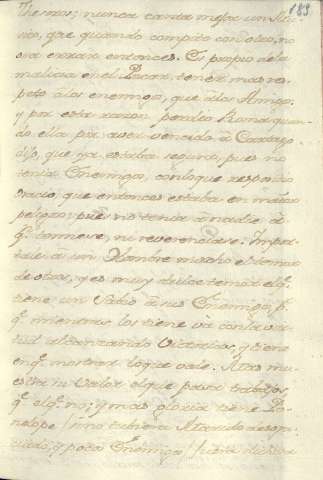 183
Thesoro; nunca canta mejor un Mu-
sico, que quando compite con otro, no
osa errar entonces. Es propio de la
malicia en el Pecar, tener mas res-
peto à los enemigos, que à los Amigos:
y por esta razon perdio Roma quan-
do ella por aver vencido à Cartago
dijo, que ya estaba segura, pues no
tenia Enemigos, con loque respondio
que entonces estaba en mayor
peligro, pues no tenia à nadie à
q.ⁿ temiese, ni reverenciase. Impor-
tale à un Hombre mucho el temor
de otros, y es muy dulce temor el q.
tiene un Sabio à sus Enemigos p.
q. mientras los tiene và con la vir-
tud alcanzando Victorias, y tiene
en q. mostrar loque vale. Mas mu-
estra su valor el que pasa trabajos,
q. el q. no; y mas gloria tiene Pe-
nelope / sino tubiera Marido
y poco Enemigo / fuera